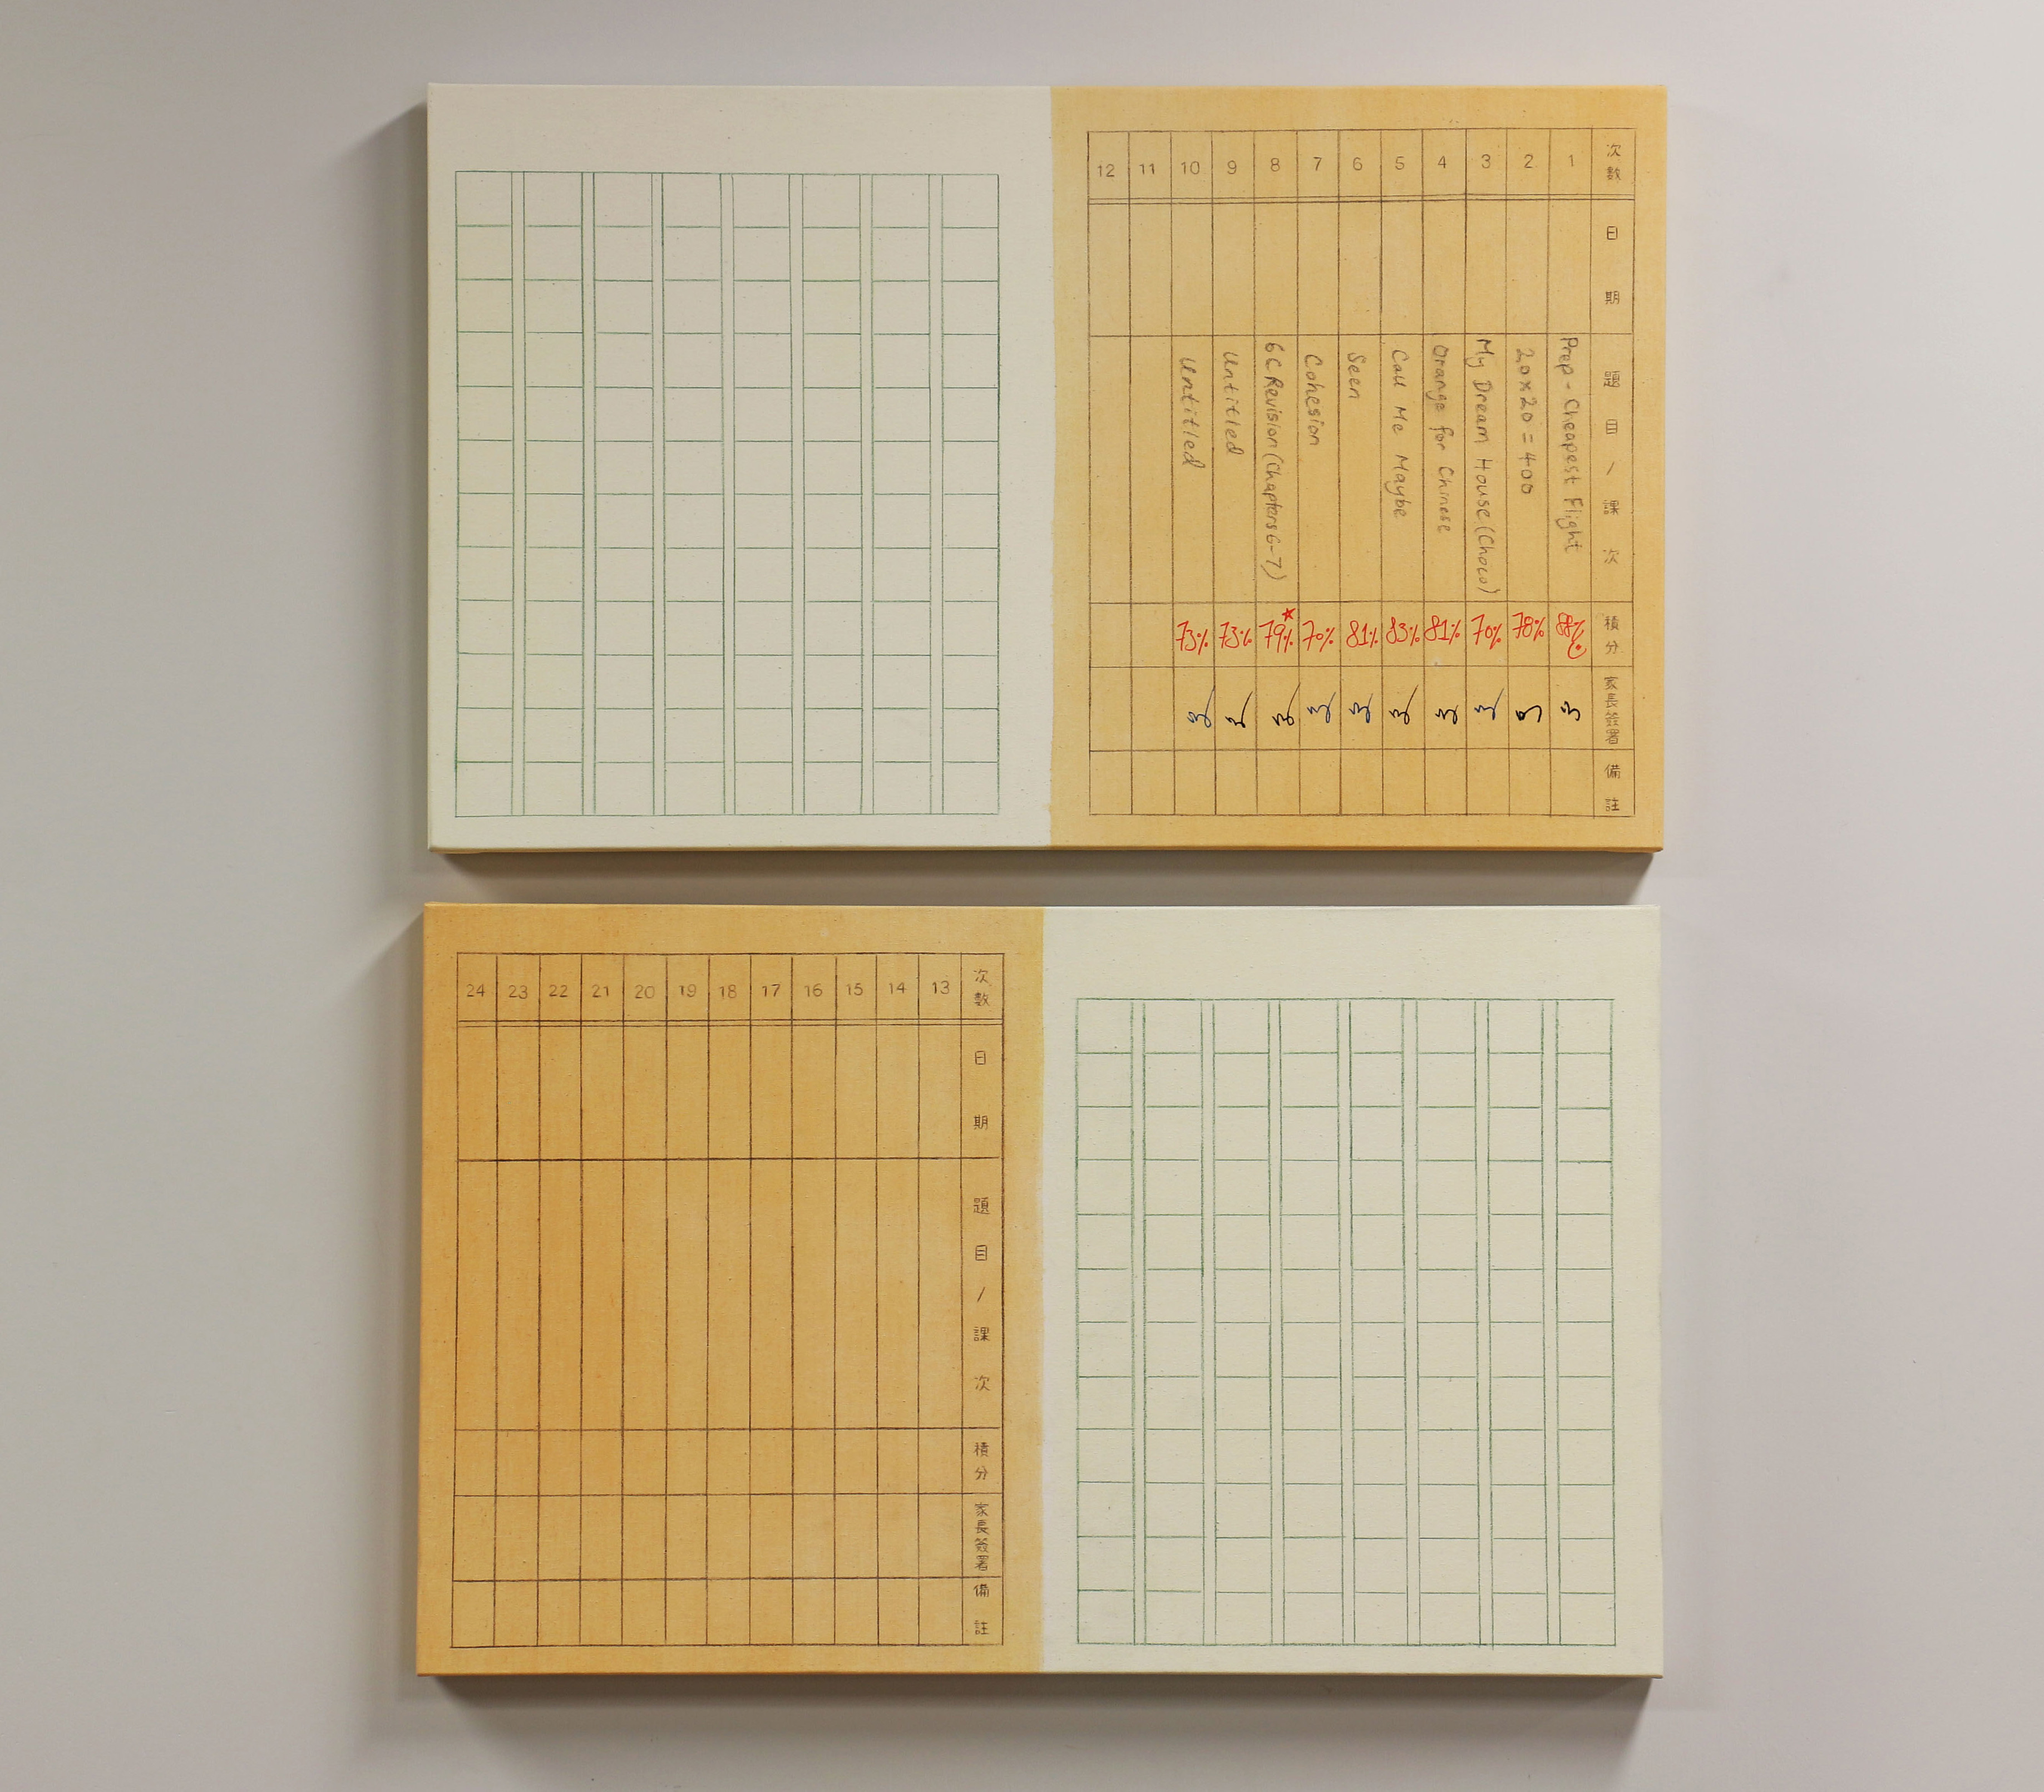 次數 日期 題目/課次 積分 家長簽署 備註
1 Prep-Cheapest Flight 88%
2 20×20=400 78%
3 My Dream House (Choco) 70%
4 Orange for Chinese 81%
5 Call Me Maybe 83%
6 Seen 81%
7 Cohesion 70%
8 6C Revision (Chapters 6-7) 79%
9 Untitled 73%
10 Untitled 73%
11
12
次數 日期 題目/課次 積分 家長簽署 備註
13
14
15
16
17
18
19
20
21
22
23
24